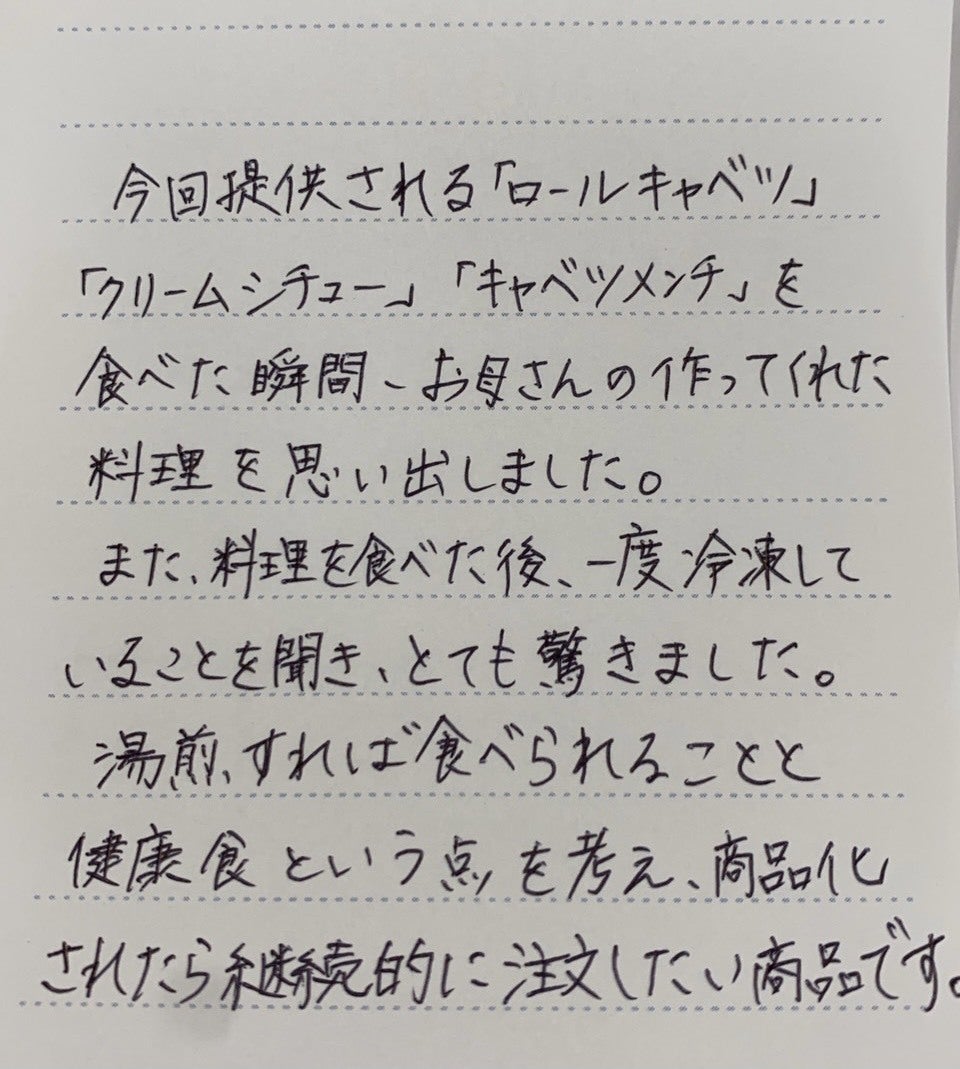 今回提供される「ロールキャベツ」
「クリームシチュー」「キャベツメンチ」を
食べた瞬間、お母さんの作ってくれた
料理を思い出しました。
また、料理を食べた後、一度冷凍して
いることを聞き、とても驚きました。
湯煎すれば食べられることと
健康食という点を考え、商品化
されたら継続的に注文したい商品です。